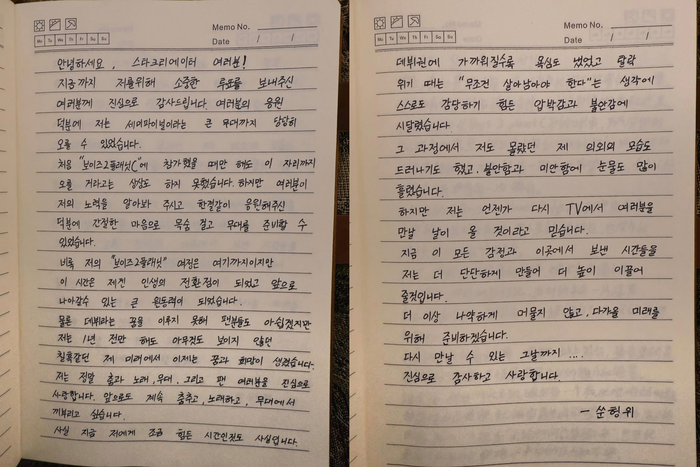 Memo No.
Mo Tu We Th Fr Sa Su
Date / /
안녕하세요, 스타크리에이터 여러분!
지금까지 저를위해 소중한 투표를 보내주신
여러분께 진심으로 감사드립니다. 여러분의 응원
덕분에 저는 세미파이널이라는 큰 무대까지 당당히
오를 수 있었습니다.
처음 "보이즈2플래닛C"에 참가했을 때만 해도 이 자리까지
오를 거라고는 상상도 하지 못했습니다. 하지만 여러분이
저의 노력을 알아봐 주시고 한결같이 응원해주신
덕분에 간절한 마음으로 목숨 걸고 무대를 준비할 수
있었습니다.
비록 저의 "보이즈2플래닛" 여정은 여기까지이지만
이 시간은 제겐 인생의 전환점이 되었고 앞으로
나아갈수 있는 큰 원동력이 되었습니다.
물론 데뷔라는 꿈을 이루지 못해 팬분들도 아쉽겠지만
저는 1년 전만 해도 아무것도 보이지 않던
칠흑같던 제 미래에서 이제는 꿈과 희망이 생겼습니다.
저는 정말 춤과 노래, 무대, 그리고 팬 여러분을 진심으로
사랑합니다. 앞으로도 계속 춤추고, 노래하고, 무대에서
끼부리고 싶습니다.
사실 지금 저에게 조금 힘든 시간인것도 사실입니다.
Memo No.
Mo Tu We Th Fr Sa Su
Date / /
데뷔권에 가까워질수록 욕심도 났었고 탈락
위기 때는 "무조건 살아남아야 한다"는 생각에
스스로도 감당하기 힘든 압박감과 불안감에
시달렸습니다.
그 과정에서 저도 몰랐던 제 의외의 모습도
드러나기도 했고, 불안함과 미안함에 눈물도 많이
흘렸습니다.
하지만 저는 언젠가 다시 TV에서 여러분을
만날 날이 올 것이라고 믿습니다.
지금 이 모든 감정과 이곳에서 보낸 시간들을
저는 더 단단하게 만들어 더 높이 이끌어
줄것입니다.
더 이상 나약하게 머물지 않고, 다가올 미래를
위해 준비하겠습니다.
다시 만날 수 있는 그날까지 ....
진심으로 감사하고 사랑합니다.
- 쑨헝위